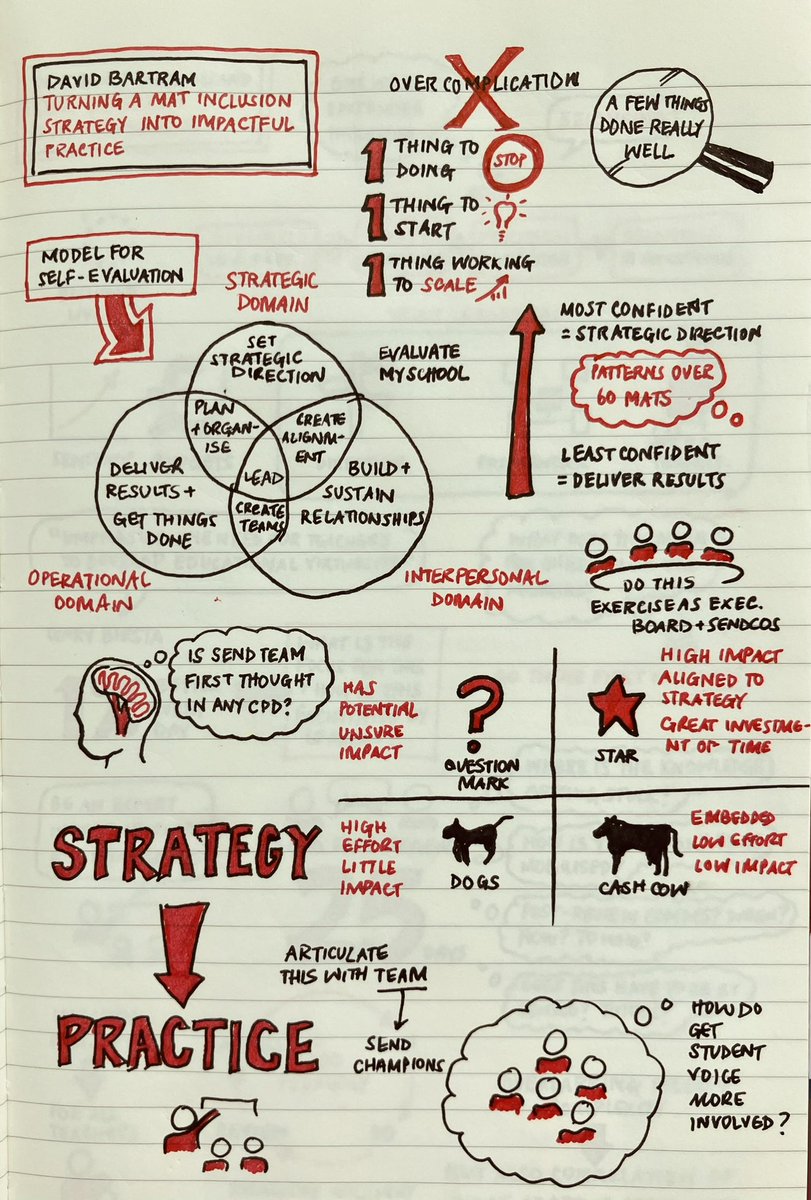 DAVID BARTRAM
TURNING A MAT INCLUSION
STRATEGY INTO IMPACTFUL
PRACTICE
OVER COMPLICATION
X
A FEW THINGS
DONE REALLY
WELL
1 THING TO
DOING
STOP
1 THING TO
START
1 THING WORKING
TO SCALE
MODEL FOR
SELF-EVALUATION
STRATEGIC
DOMAIN
SET
STRATEGIC
DIRECTION
PLAN
+ ORGAN-
ISE
CREATE
ALIGNM-
ENT
LEAD
DELIVER
RESULTS +
GET THINGS
DONE
CREATE
TEAMS
BUILD +
SUSTAIN
RELATIONSHIPS
OPERATIONAL
DOMAIN
INTERPERSONAL
DOMAIN
EVALUATE
MY SCHOOL
MOST CONFIDENT
= STRATEGIC DIRECTION
PATTERNS OVER
60 MATS
LEAST CONFIDENT
= DELIVER RESULTS
DO THIS
EXERCISE AS EXEC.
BOARD + SENDCOS
IS SEND TEAM
FIRST THOUGHT
IN ANY CPD?
HAS
POTENTIAL
UNSURE
IMPACT
?
QUESTION
MARK
STAR
HIGH IMPACT
ALIGNED TO
STRATEGY
GREAT INVESTME-
NT OF TIME
HIGH
EFFORT
LITTLE
IMPACT
DOGS
CASH COW
EMBEDDED
LOW EFFORT
LOW IMPACT
STRATEGY
PRACTICE
ARTICULATE
THIS WITH TEAM
SEND
CHAMPIONS
HOW DO
GET
STUDENT
VOICE
MORE
INVOLVED?